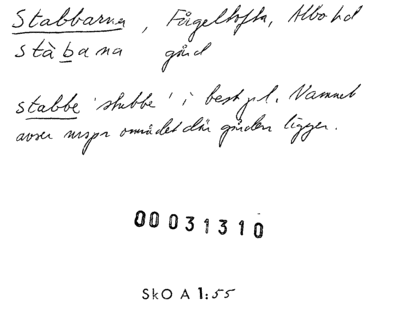 Stabbarna, Fågeltofta, Albo hd
stàbana gård
stabbe 'stubbe' i best pl. Namnet
avser urspr området där gården ligger.
00031310
SkO A 1:55